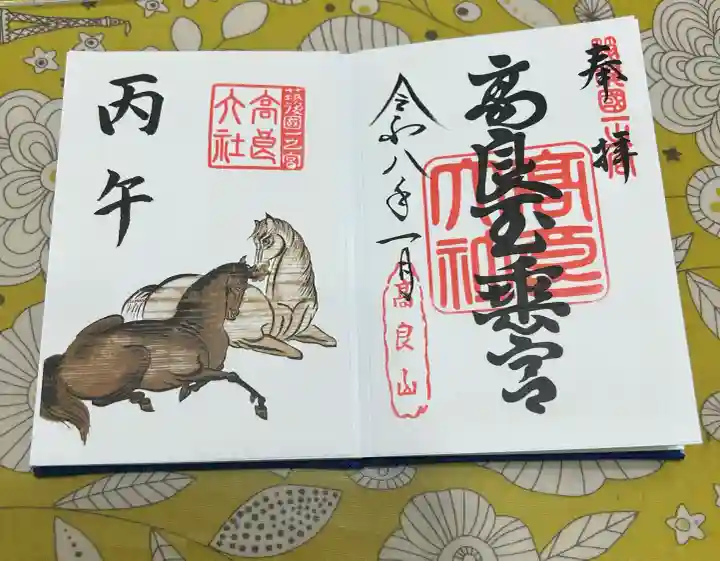 奉拝
筑後國一之宮
高良玉垂宮
高良大社
令和八年一月
高良山
筑後國一之宮
高良大社
丙午